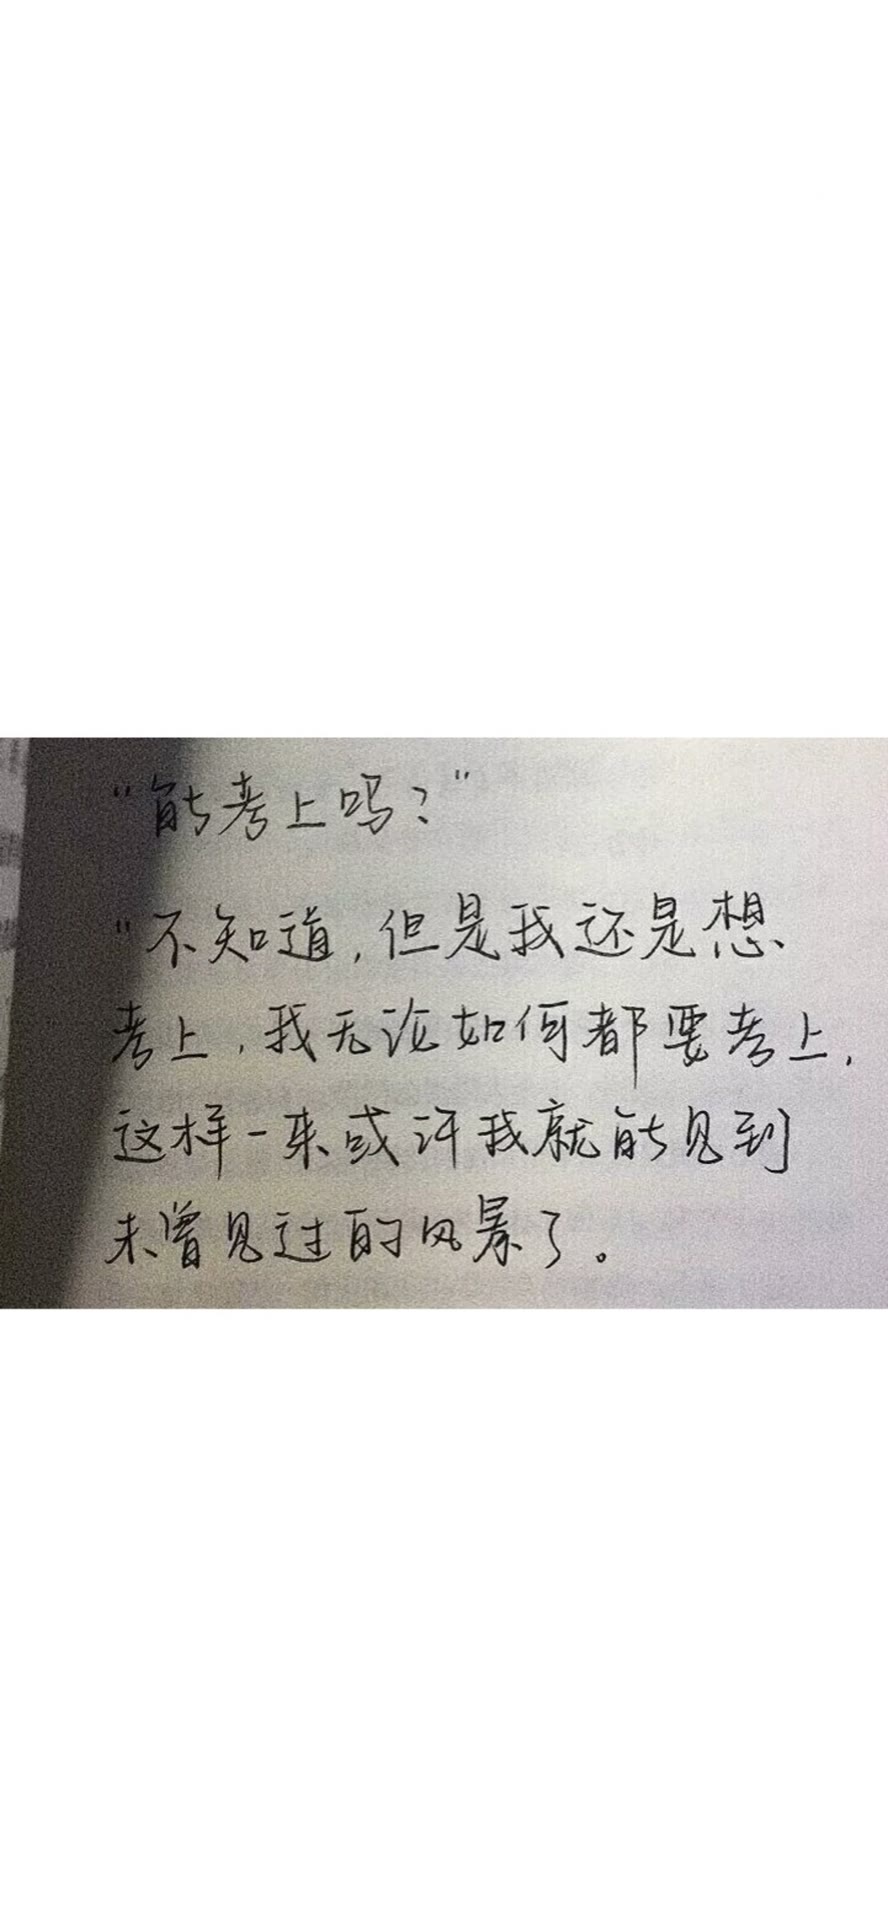 "能考上吗？"
"不知道，但是我还是想
考上，我无论如何都要考上，
这样一来或许我就能见到
未曾见过的风景了。